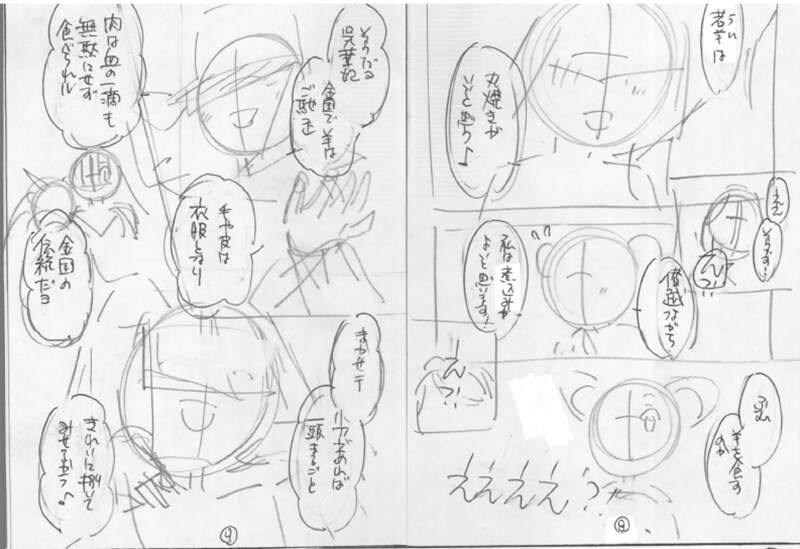 若羊は
丸焼きが
いいと思う♪
ええ
そうです!
えっ!
僭越ながら
私は煮込みが
よいと思います!
えっ!
ふむ
羊を食す
のか
ええええ?
⑧
そうだろ
呉葉妃
金国で羊は
ご馳走
肉は血の一滴も
無駄にせず
食べられル
毛や皮は
衣服となり
金国の
伝統だヨ
まかせテ
小刀があれば
一頭まるごと
きれいに捌いて
みせてあげる♪
⑨